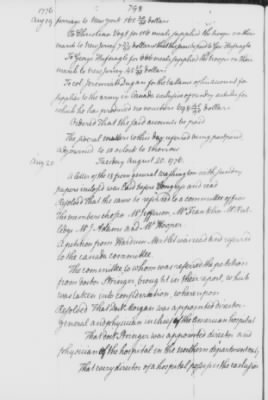 1776. 798
Aug 19 ferriage to New York 161 dollars
To Christina Vogt for meals supplied the troops on their
march to New Jersey dollars that the same be paid to Geo Hufnagle
To George Hufnagle for meals supplied the troops on their
march to New Jersey dollars
To col Jeremiah Duggan for the ballance of his account for
supplies to the army in Canada exclusive of sundry articles for
which he has produced no vouchers dollars.
Ordered That the said accounts be paid
The several matters to this day referred being postponed
adjourned to 10 o'clock to Morrow
Aug 20. Tuesday August 20. 1776.
A letter of the 18 from general Washington with sundry
papers inclosed was laid before Congress and read
Resolved That the same be referred to a committee of five
The members chosen Mr Jefferson, Mr Franklin Mr Rut-
ledge Mr J. Adams and Mr Hooper
A petition from was read and referred
to the canada committee.
The committee to whom was referred the petition
from doctor Stringer, brought in their report, which
was taken into consideration, whereupon
Resolved That Doct. Morgan was appointed director
general and physician in chief of the American hospital
That doct. Stringer was appointed director and
physician of the hospital in the northern department only
That every director of a hospital possesses the exclusive